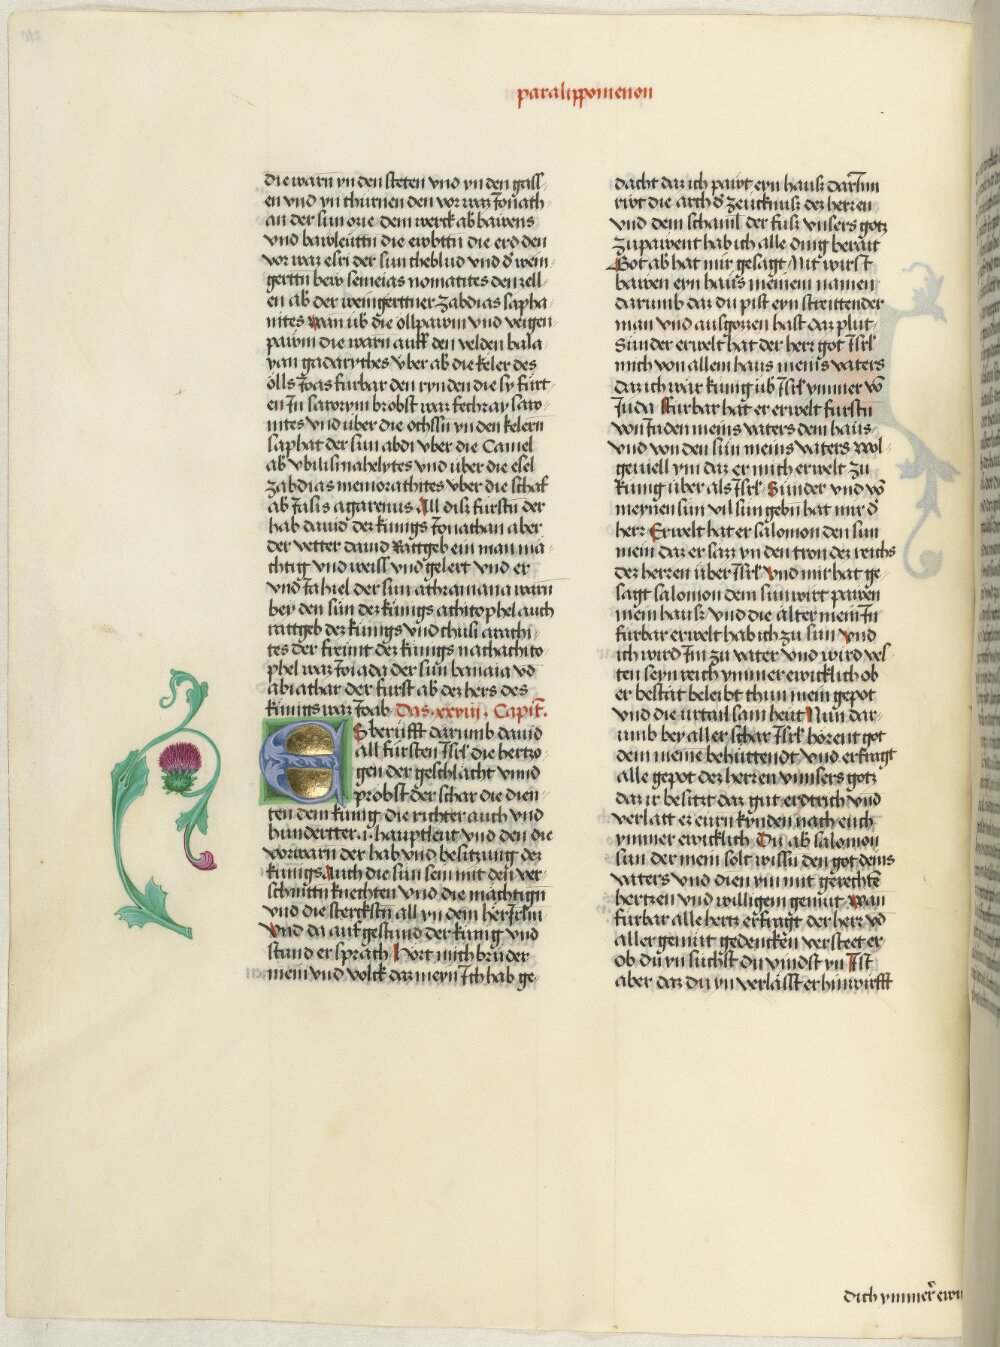 paralippomenon
die warn yn den steten vnd yn den gass-
en vnd yn thurnen den vor was Jonath-
an der sun ozie dem werck ab bawens
vnd bawleuttn die erbbttn die erd den
vor war esri der sun theblud vnd d' wein-
gerttn bew semeias nomatites den zell-
en ab der weingerttner zabdias sapha-
nites wan üb die öllpawm vnd veigen-
pawm die warn auff den velden bala-
nan gadarythes vber ab die keler des
ölls Joas fürbar den rynden die sy fürt-
en In saronym brobst war sethray saro-
nites vnd über die ochssn yn den kelern
saphat der sun abdi vber die Camel
ab vbil ismahelytes vnd über die esel
zabdias memorathites vber die schaf
ab Jasis agarenus All diss fürstn der
hab dauid dez künigs Jonathan aber
der vetter dauid Rattgeb ein man mä-
chtig vnd weiss vnd gelert vnd er
vnd Jahiel der sun athramana warn
bey den sün dez künigs achitophel auch
rattgeb dez künigs vnd thusi arathi-
tes der freunt dez künigs nach achito-
phel war Joiada der sun banaia vnd
abiathar der fürst ab dez hers des
künigs war Joab Das .xxviii. Capit.
Eberüfft darumb dauid
all fürsten Isrl die hertzo-
gen der geschlächt vnnd
pröbst der schar die dien-
ten dem künig die richter auch vnd
hundertter .i. hauptleut vnd den die
vorwarn der hab vnd besitzung dez
künigs Auch die sün sein mit den ver-
schnittn knechten vnd die mächtign
vnd die sterckstn all yn dem her Jrlm
vnd da auf gestund der künig vnd
stund er sprach Hört mich brüder
mein vnd volck daz meyn Ich hab ge-
dacht daz ich pawt eyn hauss darInn
rwt die arch d' zeucknuss dez herren
vnd dem schamil der fuss vnsers gotz
zu pawent hab ich alle ding berait
Got ab hat mir gesagt Nit wirst
bawen eyn haus meinem namen
darumb daz du pist eyn streittender
man vnd ausgozzen hast daz plüt
Sünder erwelt hat der herr got Isrl
mich von allem haus meins vaters
daz ich wär künig üb Isrl ymmer vō
Juda Fürbar hat er erwelt fürstn
von Juden meins vaters dem haus
vnd von den sün meins vaters wol
geuell ym daz er mich erwelt zu
künig über als Isrl Sünder vnd vō
meynen sün vil sün gebn hat mir d'
herr Erwelt hat er salomon den sun
mein daz er sazz yn den tron dez reichs
dez herren über Isrl vnd mir hat ge-
sagt salomon dem sun wirt pawen
mein hauss vnd die älter mein In
fürbar erwelt hab ich zu sun vnd
ich wird Im zu vater vnd wird ves-
ten seyn reich ymmer ewicklich ob
er bestät beleibt thun mein gepot
vnd die urtail sam heut Nun dar-
umb bey aller schar Isrl hörent got
dem meine behüttendt vnd erfragt
alle gepot dez herren vnnsers gotz
daz ir besitzt daz gut erdtrich vnd
verlätt ez eurn kynden nach euch
ymmer ewicklich Du ab salomon
sun der mein solt wissn den got deins
vaters vnd dien ym mit gerechtē
hertzen vnd willigem gemüt wan
fürbar alle hertz erfragt der herr vō
aller gemüt gedencken versteet er
ob du yn suchst du vindst yn Ist
aber daz du yn verlässt er hinwürfft
dich ymmer ewi